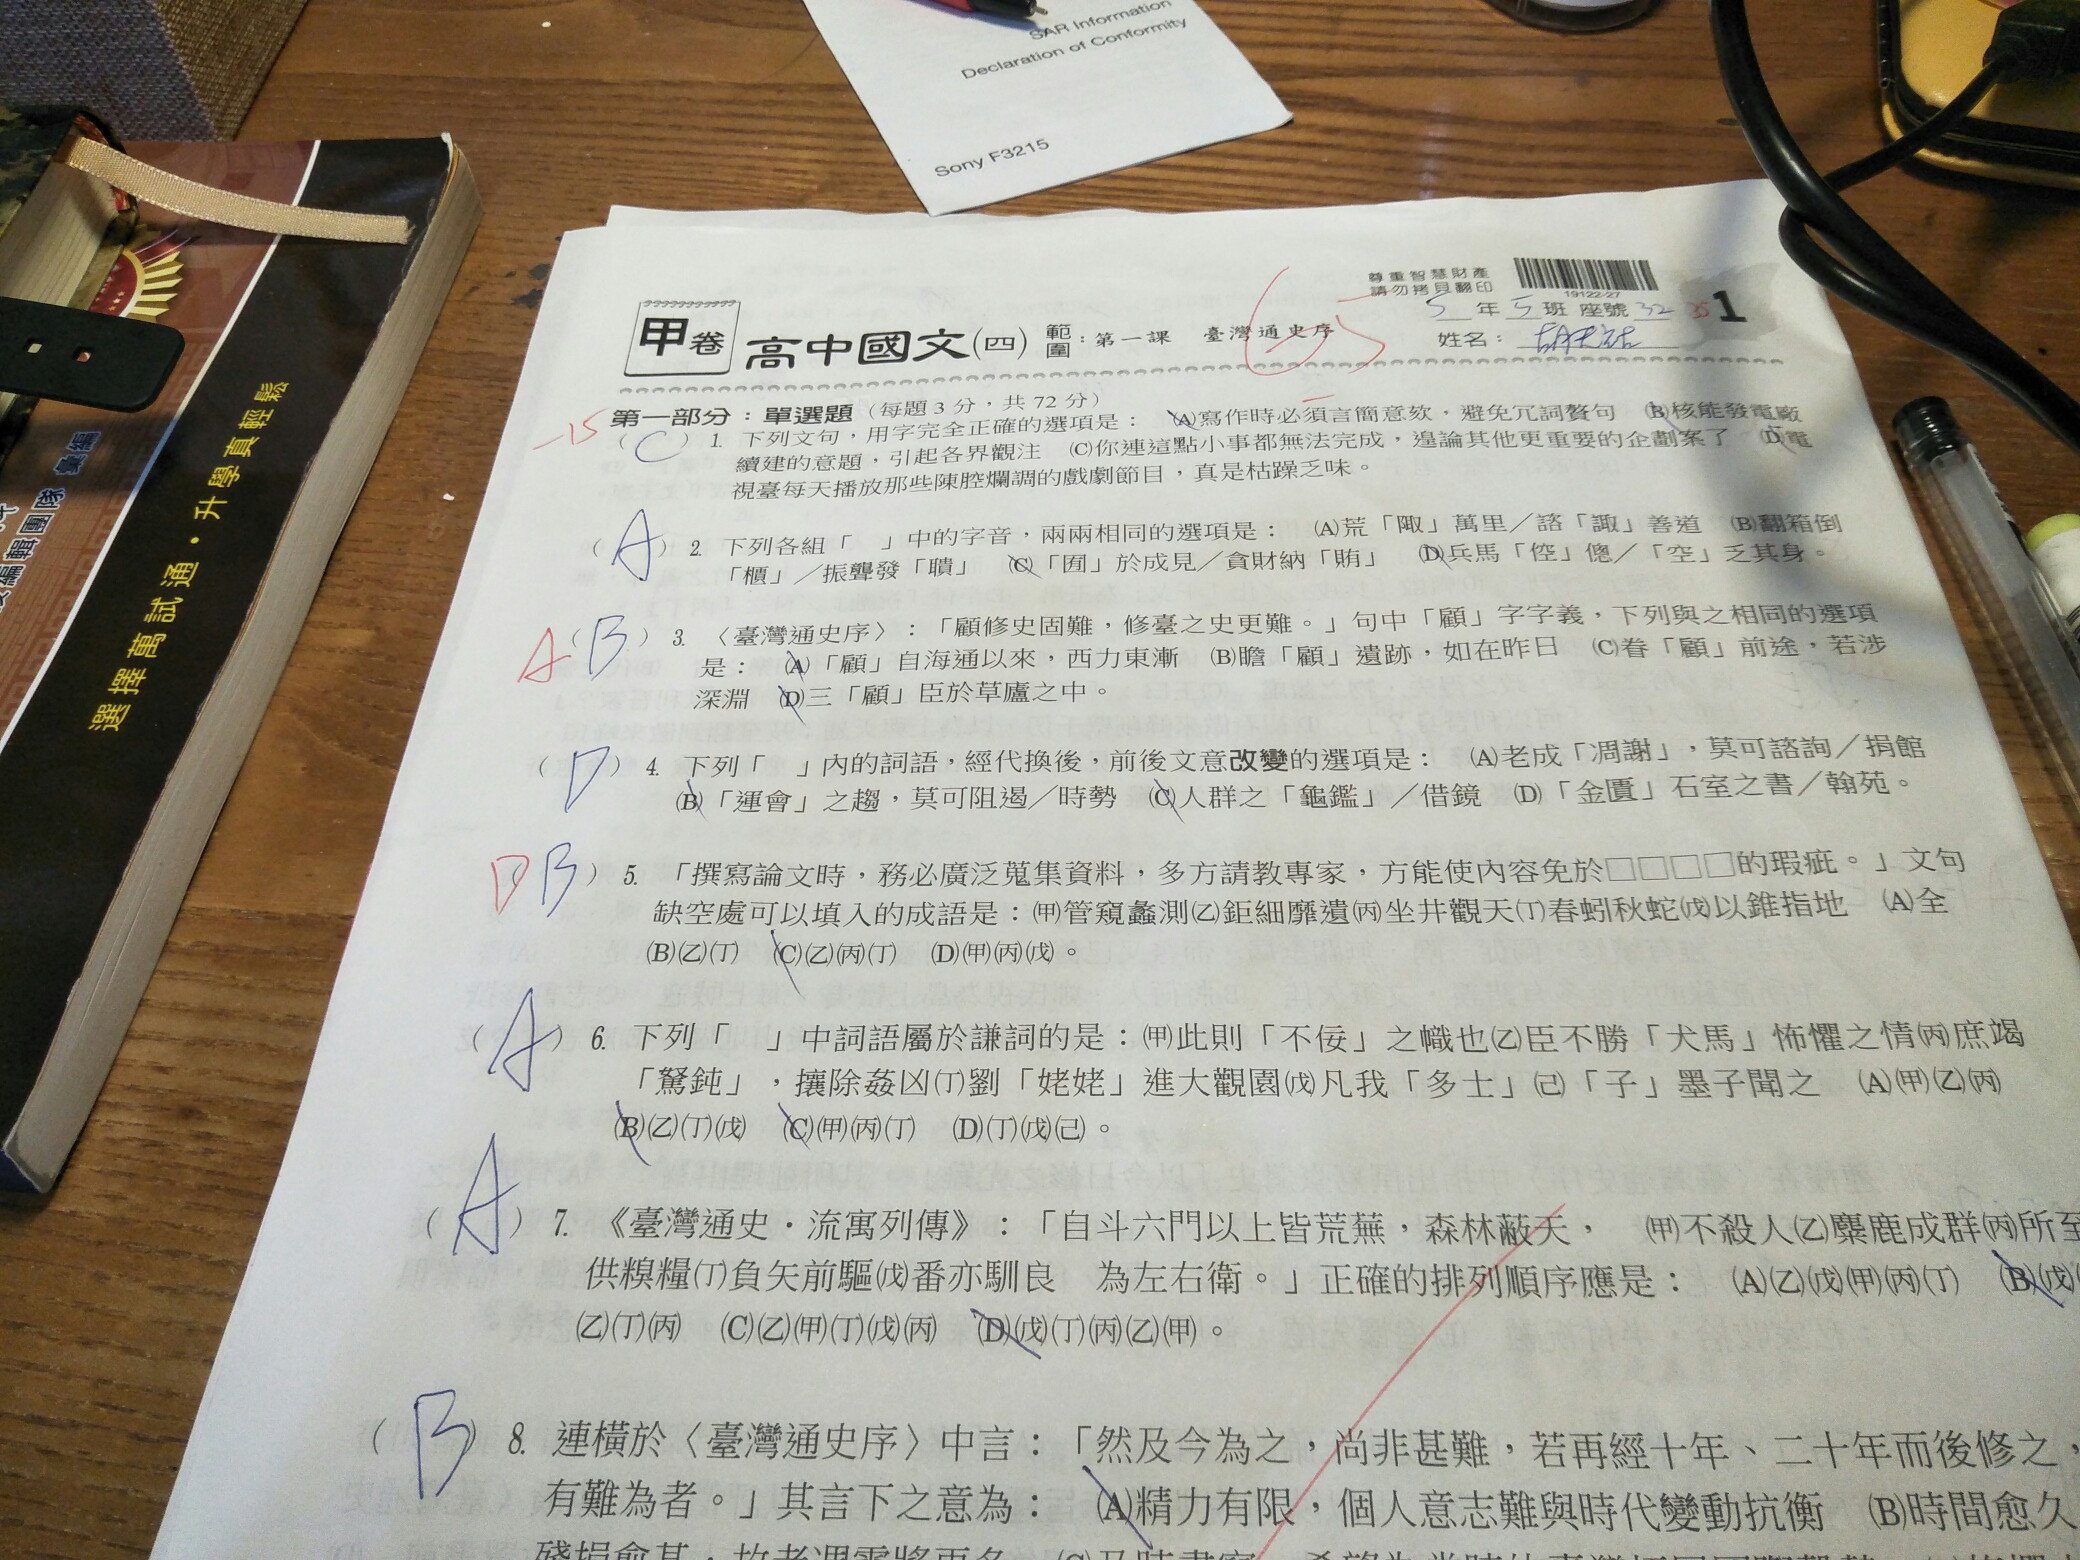 SAR Information
Declaration of Conformity
Sony F3215
選擇萬試通・升學真輕鬆
編輯團隊 彙編
尊重智慧財產
請勿拷貝翻印
19122-27
5 年 5 班 座號 32 35 1
姓名：
甲卷 高中國文(四) 範圍：第一課 臺灣通史序
65
-15
第一部分：單選題（每題 3 分，共 72 分）
（ C ） 1. 下列文句，用字完全正確的選項是： (A)寫作時必須言簡意欬，避免冗詞贅句 (B)核能發電廠
續建的意題，引起各界觀注 (C)你連這點小事都無法完成，遑論其他更重要的企劃案了 (D)電
視臺每天播放那些陳腔爛調的戲劇節目，真是枯躁乏味。
（ A ） 2. 下列各組「 」中的字音，兩兩相同的選項是： (A)荒「陬」萬里／諮「諏」善道 (B)翻箱倒
「櫃」／振聾發「聵」 (C)「囿」於成見／貪財納「賄」 (D)兵馬「倥」傯／「空」乏其身。
A（ B ） 3. 〈臺灣通史序〉：「顧修史固難，修臺之史更難。」句中「顧」字字義，下列與之相同的選項
是： (A)「顧」自海通以來，西力東漸 (B)瞻「顧」遺跡，如在昨日 (C)眷「顧」前途，若涉
深淵 (D)三「顧」臣於草廬之中。
（ D ） 4. 下列「 」內的詞語，經代換後，前後文意改變的選項是： (A)老成「凋謝」，莫可諮詢／捐館
(B)「運會」之趨，莫可阻遏／時勢 (C)人群之「龜鑑」／借鏡 (D)「金匱」石室之書／翰苑。
D B ） 5. 「撰寫論文時，務必廣泛蒐集資料，多方請教專家，方能使內容免於□□□□的瑕疵。」文句
缺空處可以填入的成語是：(甲)管窺蠡測(乙)鉅細靡遺(丙)坐井觀天(丁)春蚓秋蛇(戊)以錐指地 (A)全
(B)(乙)(丁) (C)(乙)(丙)(丁) (D)(甲)(丙)(戊)。
（ A ） 6. 下列「 」中詞語屬於謙詞的是：(甲)此則「不佞」之幟也(乙)臣不勝「犬馬」怖懼之情(丙)庶竭
「駑鈍」，攘除姦凶(丁)劉「姥姥」進大觀園(戊)凡我「多士」(己)「子」墨子聞之 (A)(甲)(乙)(丙)
(B)(乙)(丁)(戊) (C)(甲)(丙)(丁) (D)(丁)(戊)(己)。
（ A ） 7. 《臺灣通史・流寓列傳》：「自斗六門以上皆荒蕪，森林蔽天， (甲)不殺人(乙)麋鹿成群(丙)所至
供糗糧(丁)負矢前驅(戊)番亦馴良 為左右衛。」正確的排列順序應是： (A)(乙)(戊)(甲)(丙)(丁) (B)(戊)
(乙)(丁)(丙) (C)(乙)(甲)(丁)(戊)(丙) (D)(戊)(丁)(丙)(乙)(甲)。
（ B ） 8. 連橫於〈臺灣通史序〉中言：「然及今為之，尚非甚難，若再經十年、二十年而後修之，
有難為者。」其言下之意為： (A)精力有限，個人意志難與時代變動抗衡 (B)時間愈久